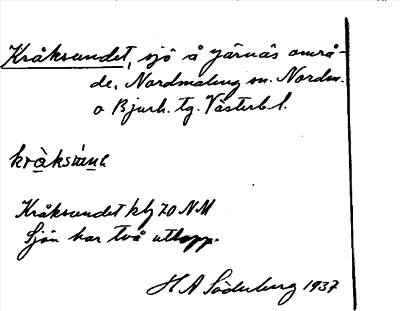 Kråksundet, sjö å Järnäs områ-
de, Nordmaling sn. Nordm.
o Bjurh. tg. Västerb l.
Kråksundet 70 NM
Sjön har två utlopp.
H A Söderberg 1937